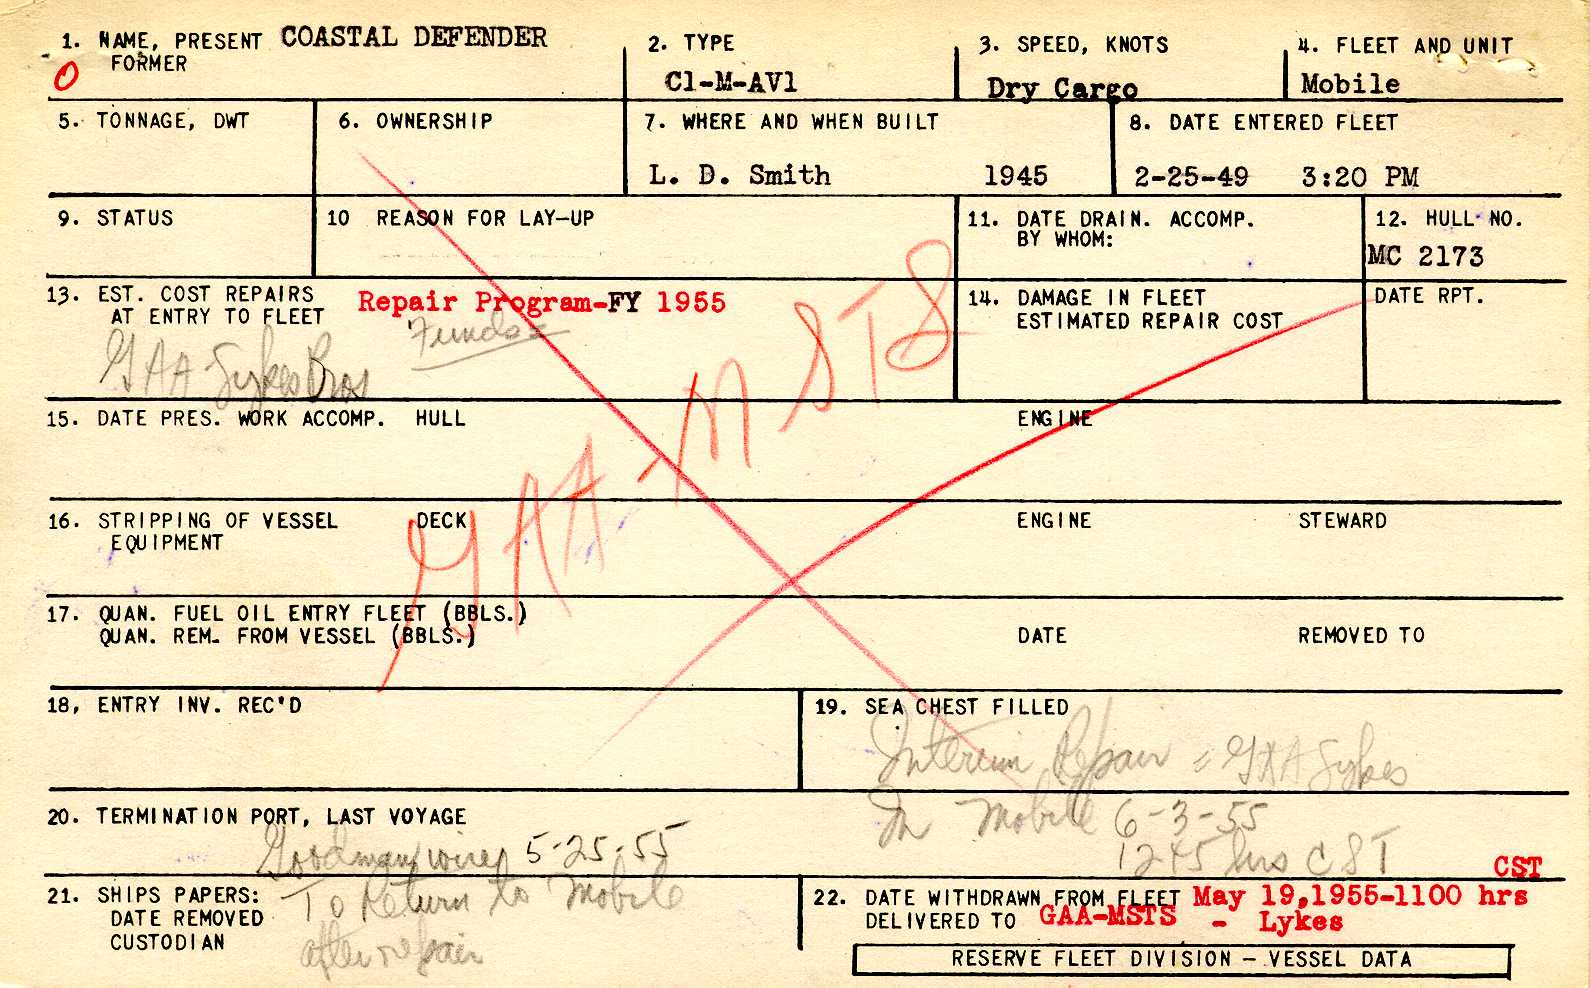 1. NAME, PRESENT COASTAL DEFENDER
FORMER
O
2. TYPE
C1-M-AV1
3. SPEED, KNOTS
Dry Cargo
4. FLEET AND UNIT
Mobile
5. TONNAGE, DWT
6. OWNERSHIP
7. WHERE AND WHEN BUILT
L. D. Smith 1945
8. DATE ENTERED FLEET
2-25-49 3:20 PM
9. STATUS
10 REASON FOR LAY-UP
11. DATE DRAIN. ACCOMP.
BY WHOM:
12. HULL NO.
MC 2173
13. EST. COST REPAIRS
AT ENTRY TO FLEET
Repair Program-FY 1955
Funds
GAA Sykes Bros
14. DAMAGE IN FLEET
ESTIMATED REPAIR COST
DATE RPT.
GAA-MSTS
15. DATE PRES. WORK ACCOMP. HULL ENGINE
16. STRIPPING OF VESSEL DECK ENGINE STEWARD
EQUIPMENT
17. QUAN. FUEL OIL ENTRY FLEET (BBLS.)
QUAN. REM. FROM VESSEL (BBLS.) DATE REMOVED TO
18, ENTRY INV. REC'D
19. SEA CHEST FILLED
Interim Repair = GAA Sykes
In Mobile 6-3-55
1245 hrs CST
20. TERMINATION PORT, LAST VOYAGE
Goodman wires 5-25-55
To Return to Mobile
after repair
21. SHIPS PAPERS:
DATE REMOVED
CUSTODIAN
CST
22. DATE WITHDRAWN FROM FLEET May 19,1955-1100 hrs
DELIVERED TO GAA-MSTS - Lykes
RESERVE FLEET DIVISION - VESSEL DATA